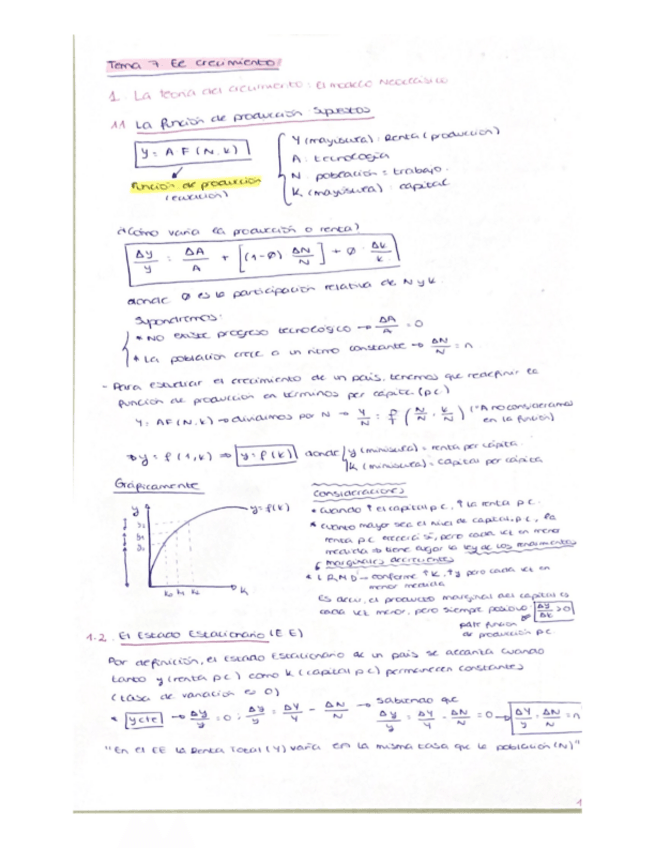 Tema 7 El crecimiento
1. La teoría del crecimiento: el modelo Neoclásico
1.1 La función de producción supuestos
Y = A·F(N,K)
función de producción
(ecuación)
Y (mayúscula): Renta (producción)
A: tecnología
N: población = trabajo.
K (mayúscula): capital
¿Cómo varía la producción o renta?
ΔY/Y = ΔA/A + [(1-Ø) ΔN/N] + Ø · ΔK/K
donde Ø es la participación relativa de N y K.
Supondremos:
* No existe progreso tecnológico → ΔA/A = 0
* La población crece a un ritmo constante → ΔN/N = n
- Para estudiar el crecimiento de un país, tenemos que redefinir la
función de producción en términos per cápita (p.c.)
Y = AF(N,K) → dividimos por N → Y/N = f (N/N, K/N) (*A no consideramos
en la función)
⇒ y = f(1,k) ⇒ y = f(k) donde y (minúscula) = renta per cápita.
k (minúscula) = capital per cápita
Gráficamente
y
y = f(k)
k
Consideraciones
* Cuando ↑ el capital p.c, ↑ la renta p.c.
* Cuanto mayor sea el nivel de capital p.c, la
renta p.c crecerá sí, pero cada vez en menor
medida ⇒ tiene lugar la ley de los rendimientos
marginales decrecientes
* LRMD → conforme ↑k, ↑y pero cada vez en
menor medida
Es decir, el producto marginal del capital es
cada vez menor, pero siempre positivo Δy/Δk > 0
pdte función
de producción p.c.
1.2. El Estado Estacionario (E E)
Por definición, el Estado Estacionario de un país se alcanza cuando
tanto y (renta p.c) como k (capital p.c) permanecen constantes
(tasa de variación es 0)
* y cte → Δy/y = 0 ; Δy/y = ΔY/Y - ΔN/N → sabiendo que
Δy/y = ΔY/Y - ΔN/N = 0 → ΔY/Y = ΔN/N = n
"En el EE la Renta Total (Y) varía en la misma tasa que la población (N)"
1